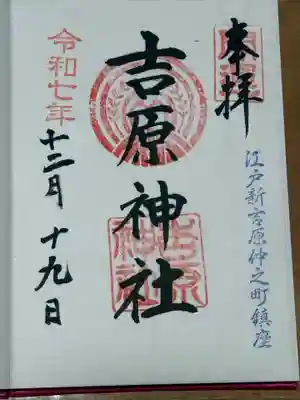 奉拝
江戸新吉原仲之町鎮座
吉原神社
令和七年
十二月十九日